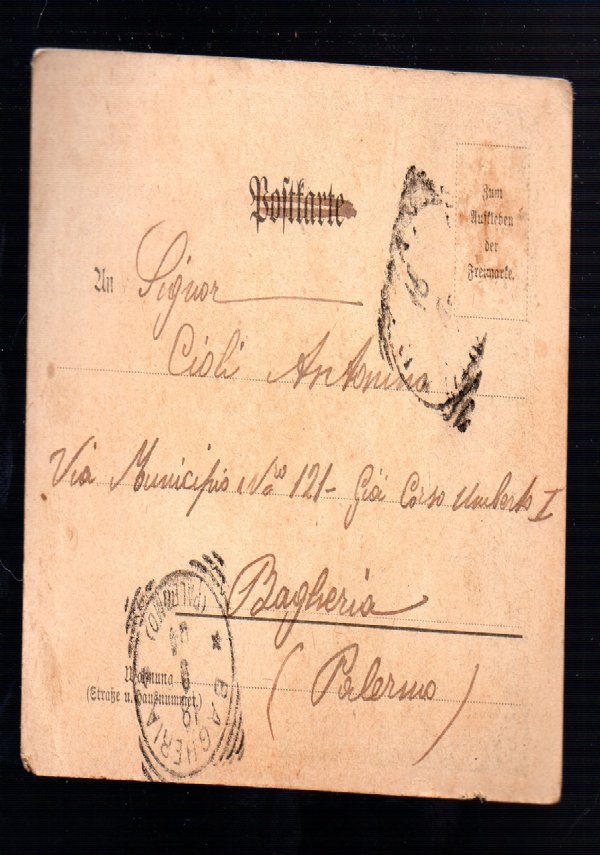 Postkarte
Zum
Aufkleben
der
Freimarke.
An Signor
Cioli Antonino
Via Municipio No 121 - Già Corso Umberto I
Bagheria
(Palermo)
Wohnung
(Straße u. Hausnummer)
BAGHERIA
(PALERMO)